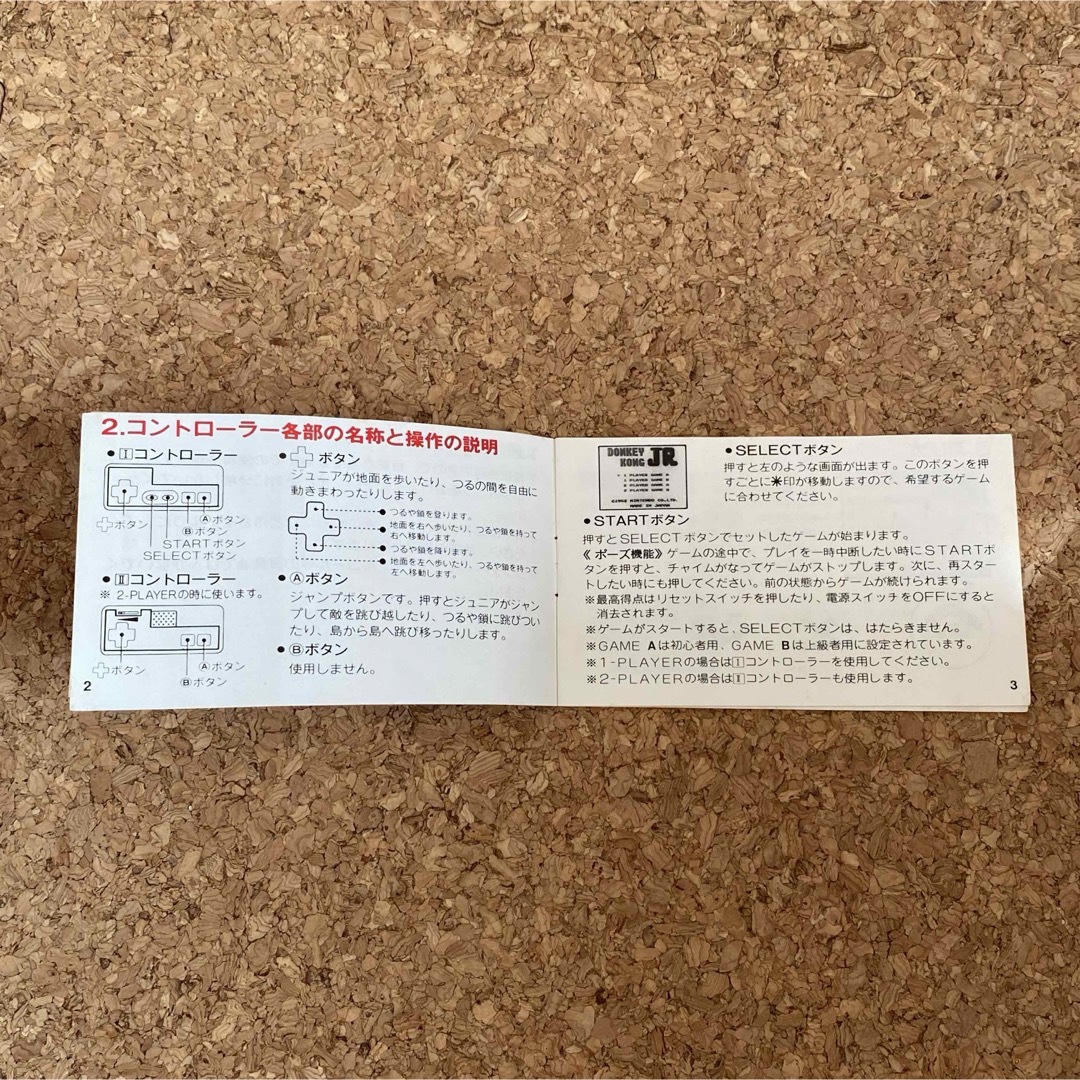 2.コントローラー各部の名称と操作の説明
●Ⅰコントローラー
ボタン
Ⓐボタン
Ⓑボタン
STARTボタン
SELECTボタン
●Ⅱコントローラー
※ 2-PLAYERの時に使います。
ボタン
Ⓐボタン
Ⓑボタン
2
●ボタン
ジュニアが地面を歩いたり、つるの間を自由に
動きまわったりします。
●つるや鎖を登ります。
●地面を右へ歩いたり、つるや鎖を持って
右へ移動します。
●つるや鎖を降ります。
●地面を左へ歩いたり、つるや鎖を持って
左へ移動します。
●Ⓐボタン
ジャンプボタンです。押すとジュニアがジャン
プして敵を跳び越したり、つるや鎖に跳びつい
たり、島から島へ跳び移ったりします。
●Ⓑボタン
使用しません。
DONKEY
KONG JR
1 PLAYER GAME A
1 PLAYER GAME B
2 PLAYER GAME A
2 PLAYER GAME B
©1982 NINTENDO CO.,LTD.
MADE IN JAPAN
●SELECTボタン
押すと左のような画面が出ます。このボタンを押
すごとに✳印が移動しますので、希望するゲーム
に合わせてください。
●STARTボタン
押すとSELECTボタンでセットしたゲームが始まります。
《ポーズ機能》ゲームの途中で、プレイを一時中断したい時にSTARTボ
タンを押すと、チャイムがなってゲームがストップします。次に、再スタ
ートしたい時にも押してください。前の状態からゲームが続けられます。
※最高得点はリセットスイッチを押したり、電源スイッチをOFFにすると
消去されます。
※ゲームがスタートすると、SELECTボタンは、はたらきません。
※GAME Aは初心者用、GAME Bは上級者用に設定されています。
※1-PLAYERの場合はⅠコントローラーを使用してください。
※2-PLAYERの場合はⅡコントローラーも使用します。
3